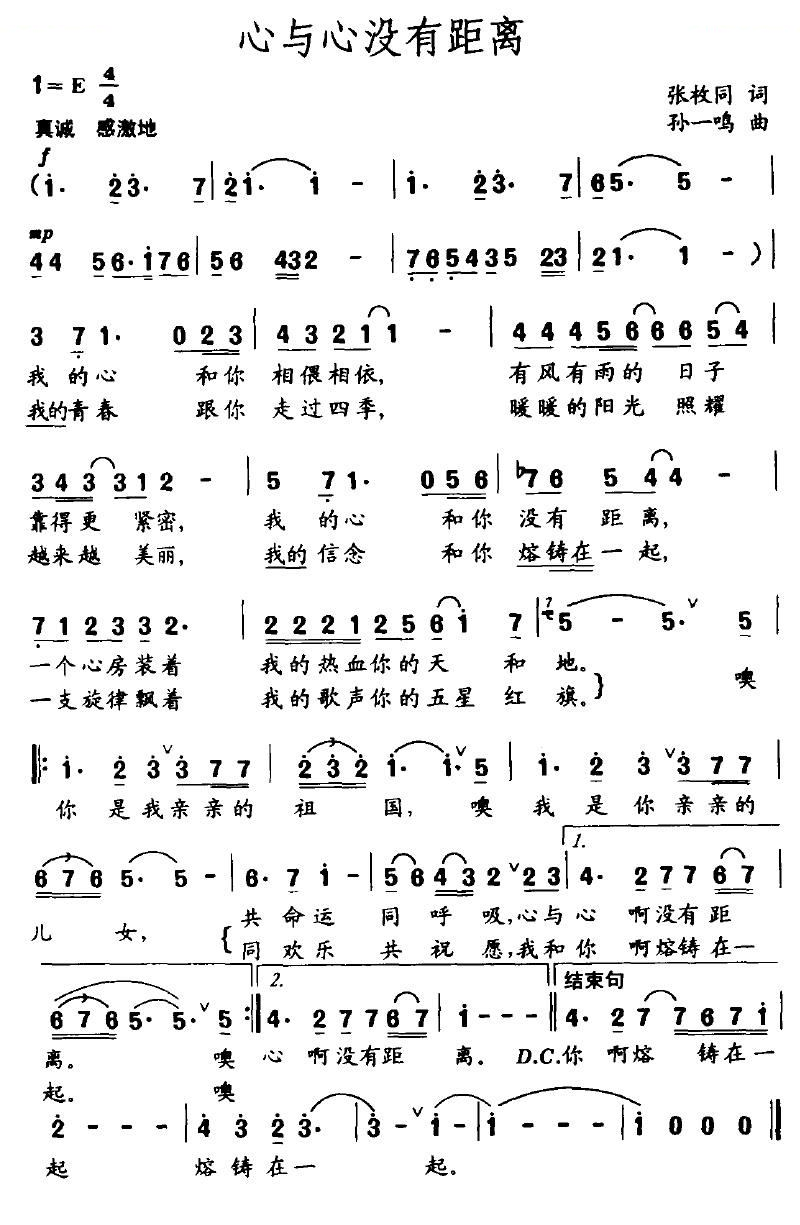 心与心没有距离
1=E 4/4
张枚同 词
真诚 感激地
孙一鸣 曲
f
(i· 2 3· 7 | 2 i· i - | i· 2 3· 7 | 6 5· 5 - |
mp
4 4 5 6· i 7 6 | 5 6 4 3 2 - | 7 6 5 4 3 5 2 3 | 2 1· 1 - ) |
3 7 1· 0 2 3 | 4 3 2 1 1 1 - | 4 4 4 5 6 6 6 5 4 |
我 的心 和你 相偎相依, 有风有雨的 日子
我的青春 跟你 走过四季, 暖暖的阳光 照耀
3 4 3 3 1 2 - | 5 7 1· 0 5 6 | ♭7 6 5 4 4 - |
靠得更 紧密, 我 的心 和你 没有 距离,
越来越 美丽, 我的信念 和你 熔铸在一起,
7 1 2 3 3 2· | 2 2 2 1 2 5 6 i 7 | 7 5 - 5· ∨ 5 |
一个心房装着 我的热血你的天 和地。
一支旋律飘着 我的歌声你的五星 红旗。} 噢
‖: i· 2 3 ∨ 3 7 7 | 3 2 3 2 i· i· ∨ 5 | i· 2 3 ∨ 3 7 7 |
你 是我亲亲的 祖 国, 噢 我 是你亲亲的
1.
3 6 7 6 5· 5 - | 6· 7 i - | 5 6 4 3 2 ∨ 2 3 | 4· 2 7 7 6 7 |
儿 女, { 共命运 同呼 吸,心与心 啊没有距
同欢乐 共祝 愿,我和你 啊熔铸在一
2. 结束句
3 6 7 6 5· 5· ∨ 5 :‖ 4· 2 7 7 6 7 | i - - - ‖ 4· 2 7 7 6 7 i |
离。 噢 心 啊没有距 离。 D.C.你 啊熔 铸在一
起。 噢
2 - - - | 4 3 2 3· | 3 - ∨ i - | i - - - | i 0 0 0 ‖
起 熔铸在一 起。